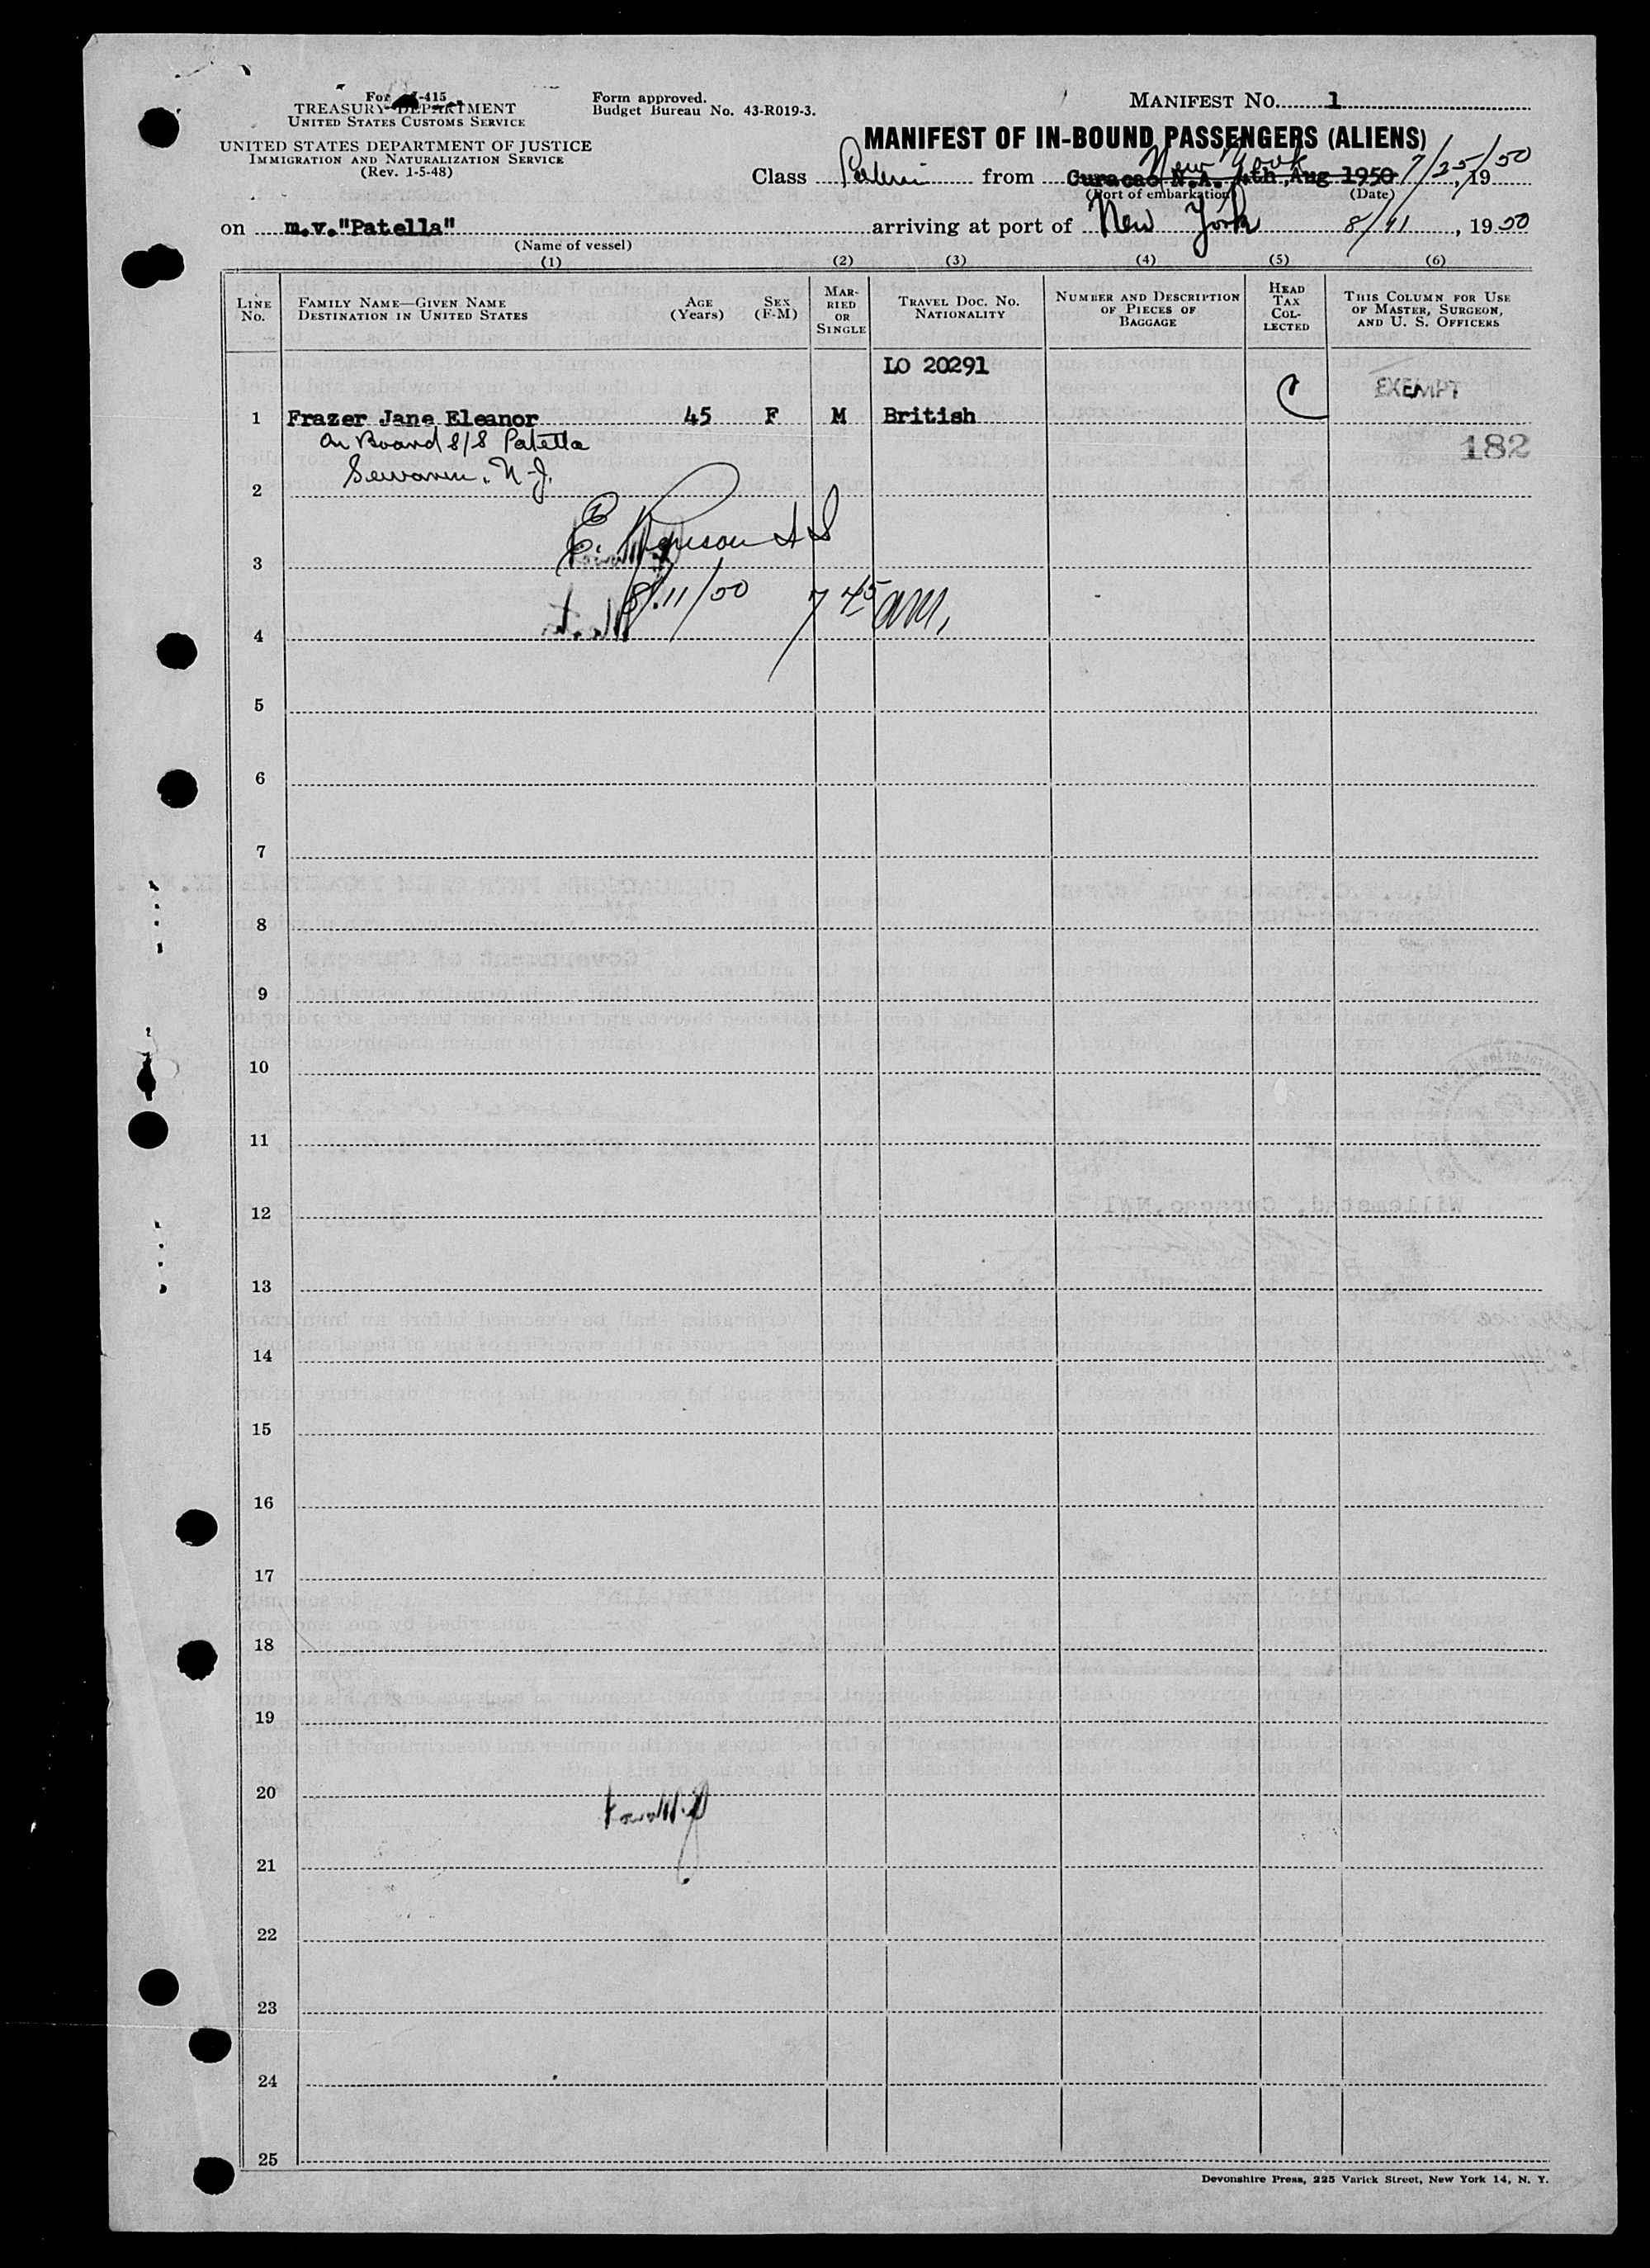 Form I-415
TREASURY DEPARTMENT
UNITED STATES CUSTOMS SERVICE
UNITED STATES DEPARTMENT OF JUSTICE
IMMIGRATION AND NATURALIZATION SERVICE
(Rev. 1-5-48)
Form approved.
Budget Bureau No. 43-R019-3.
MANIFEST NO. 1
MANIFEST OF IN-BOUND PASSENGERS (ALIENS)
New York
Class from Curacao N.A. 4th,Aug 1950 7/25/, 1950
(Port of embarkation) (Date)
on m.v."Patella" arriving at port of New York 8/11, 1950
(Name of vessel)
(1) (2) (3) (4) (5) (6)
LINE NO. FAMILY NAME—GIVEN NAME DESTINATION IN UNITED STATES AGE (Years) SEX (F-M) MARRIED OR SINGLE TRAVEL DOC. NO. NATIONALITY NUMBER AND DESCRIPTION OF PIECES OF BAGGAGE HEAD TAX COLLECTED THIS COLUMN FOR USE OF MASTER, SURGEON, AND U. S. OFFICERS
LO 20291
EXEMPT
1 Frazer Jane Eleanor 45 F M British
On Board S/S Patella
182
Sewaren, N-J.
2
3
8/11/50 7 45 am,
4
5
6
7
8
9
10
11
12
13
14
15
16
17
18
19
20
21
22
23
24
25
Devonshire Press, 225 Varick Street, New York 14, N. Y.